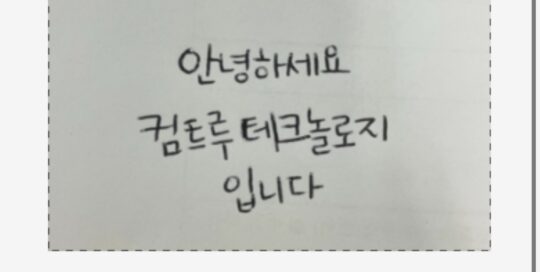 안녕하세요
컴트루 테크놀로지
입니다